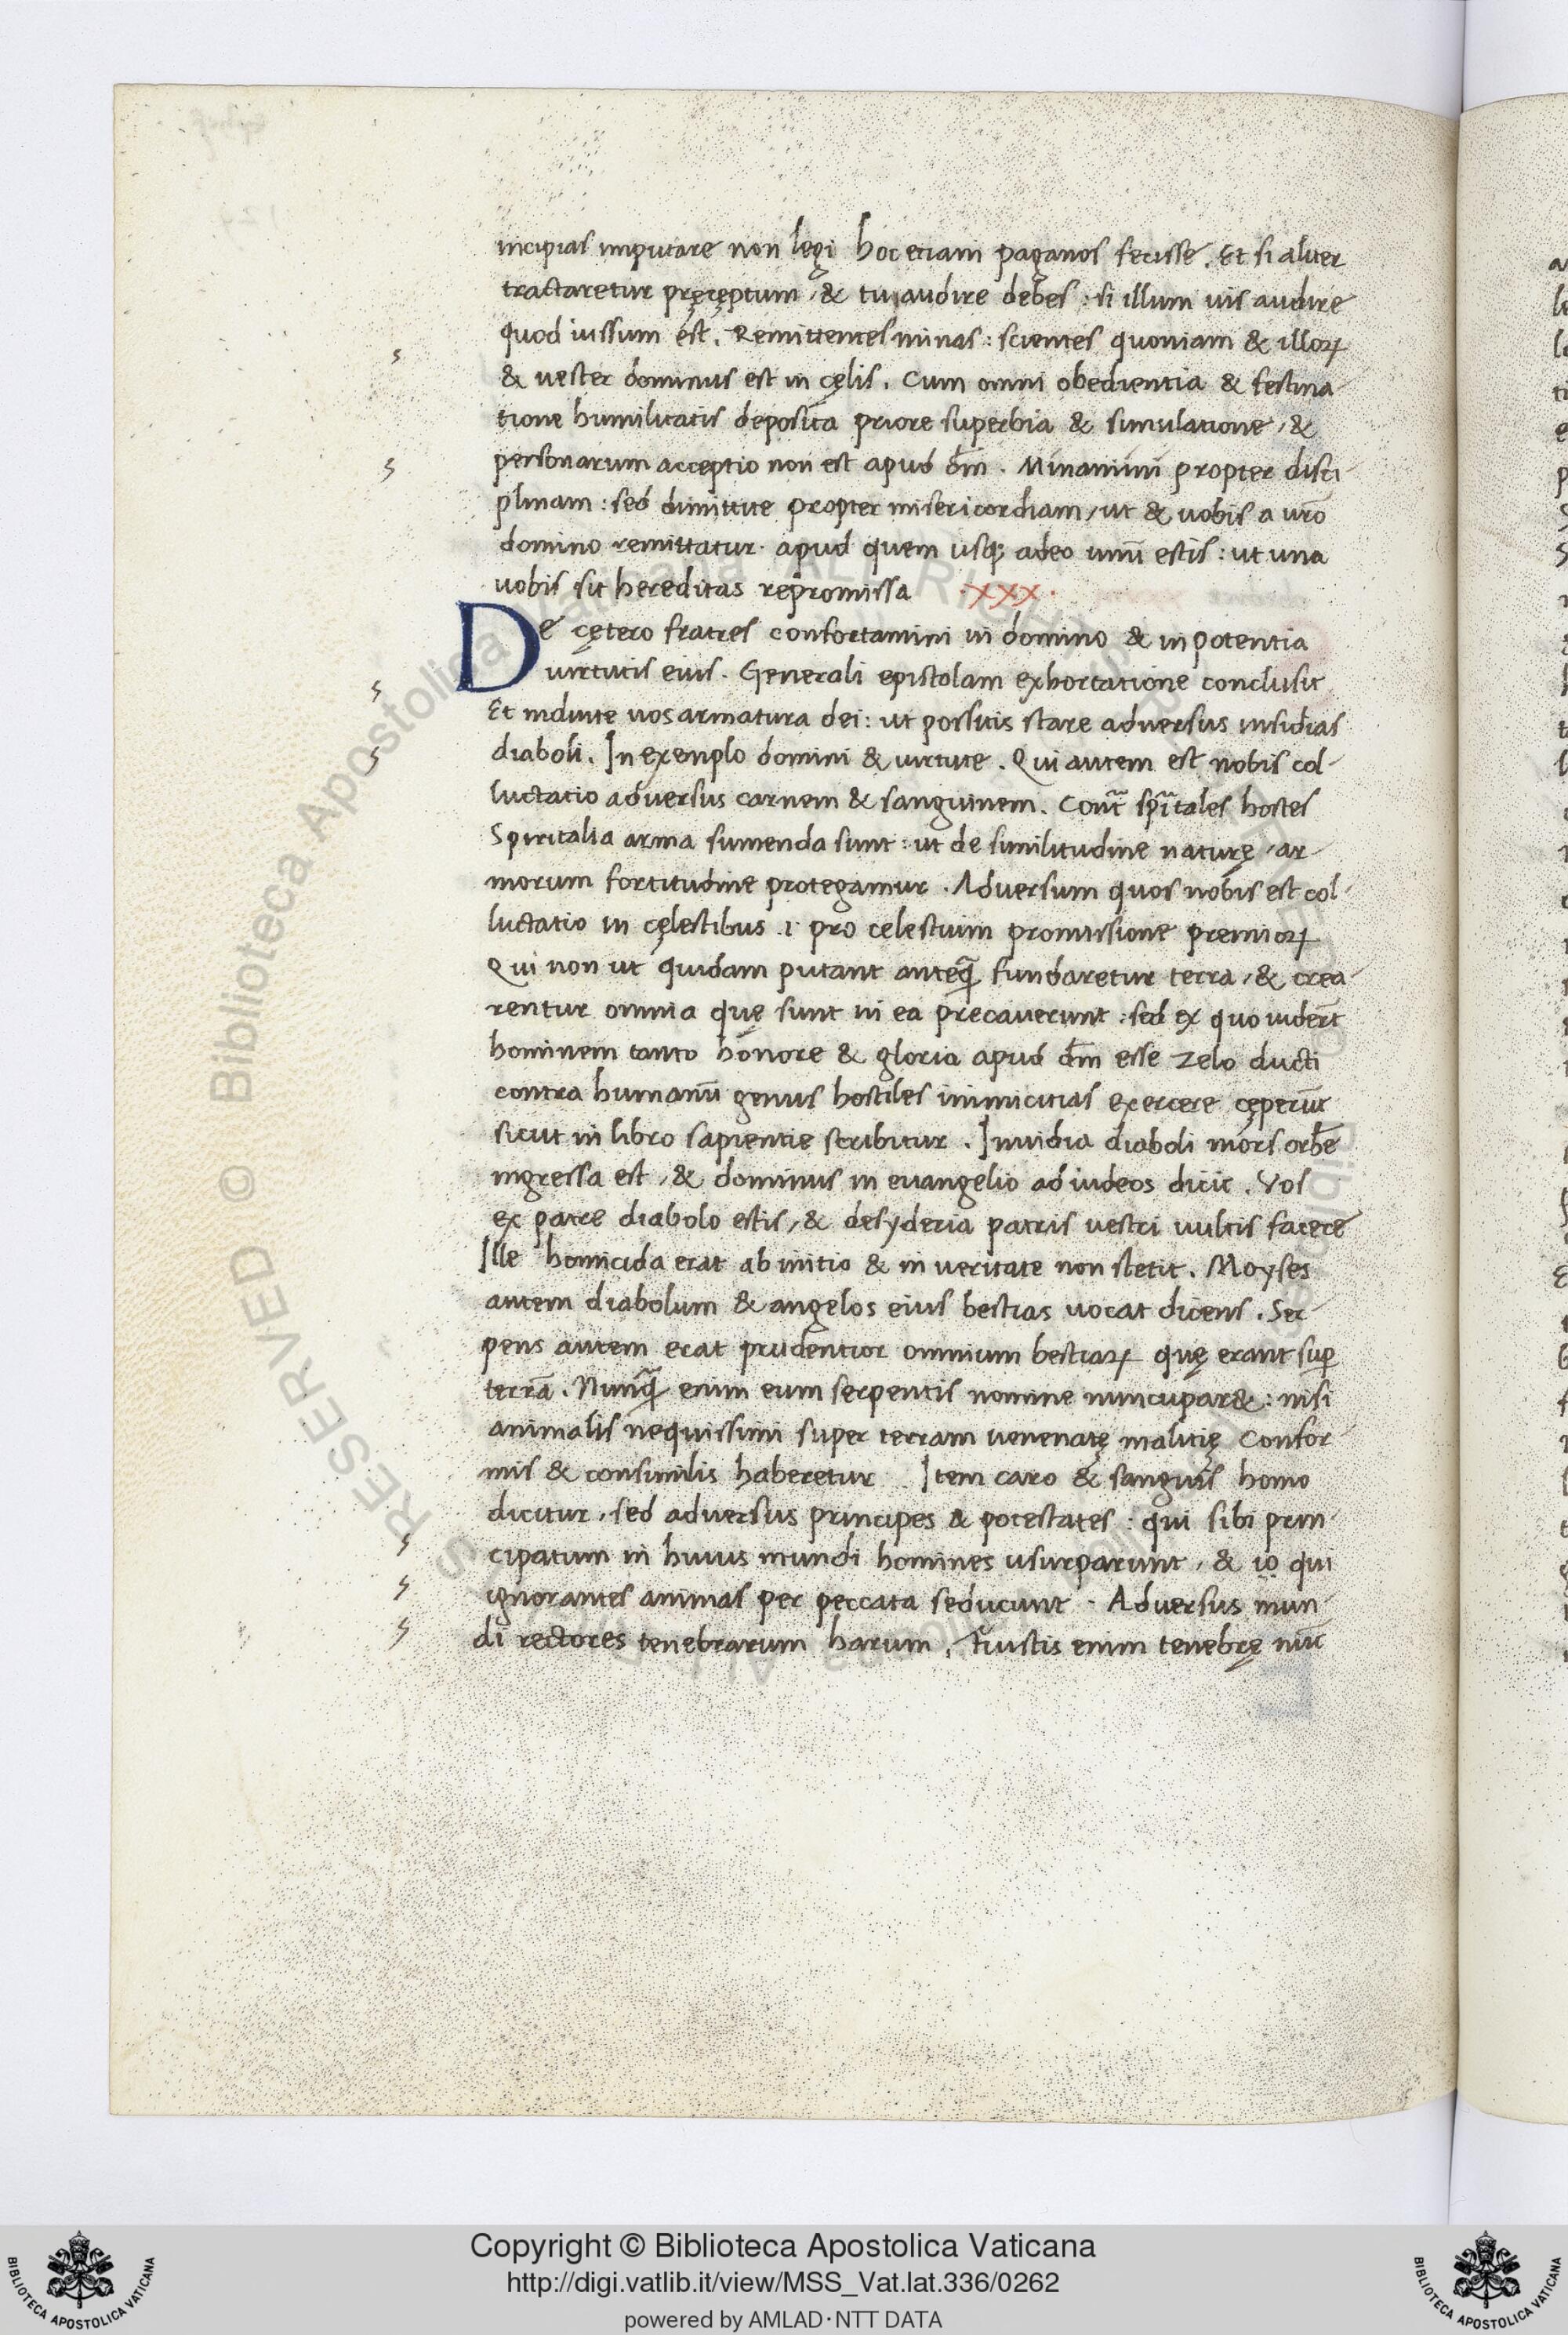 incipias imputare non legi hoc etiam paganos fecisse. Et si aliter
tractaretur pręcęptum, & tu audire debes: si illum uis audire
quod iussum est. Remittentes minas: scientes quoniam & illoꝝ
& uester dominus est in cęlis. Cum omni obedientia & festina
tione humilitatis deposita priore superbia & simulatione, &
personarum acceptio non est apud dm̄. Minamini propter disci
plinam: sed dimittite propter misericordiam, ut & uobis a uro
domino remittatur. apud quem usq; adeo unū estis: ut una
uobis sit hereditas repromissa .XXX.
De cętero fratres confortamini in domino & in potentia
uirtutis eius. Generali epistolam exhortatione conclusit
Et induite uos armatura dei: ut possitis stare aduersus insidias
diaboli. In exemplo domini & uirtute. Qui autem est nobis col-
luctatio aduersus carnem & sanguinem. Cont̄ spīitales hostes
Spiritalia arma sumenda sunt: ut de similitudine naturę, ar-
morum fortitudine protegamur. Aduersum quos nobis est col-
luctatio in cęlestibus .i. pro celestium promissione premioꝝ
Qui non ut quidam putant anteq̄ fundaretur terra, & crea-
rentur omnia quę sunt in ea precauerunt: sed ex quo uider̄t
hominem tanto honore & gloria apud dm̄ esse zelo ducti
contra humanū genus hostiles inimicitias exercere cęperūt
sicut in libro sapientie scribitur. Inuidia diaboli mors orbē
ingressa est, & dominus in euangelio ad iudeos dicit. Vos
ex patre diabolo estis, & desyderia patris uestri uultis facere
Ille homicida erat ab initio & in ueritate non stetit. Moyses
autem diabolum & angelos eius bestias uocat dicens. Ser-
pens autem erat prudentior omnium bestiaꝝ quę erant suꝑ
terrā. Nunq̄ enim eum serpentis nomine nuncupar&: nisi
animalis nequissimi super terram uenenatę malitię Confor-
mis & consimilis haberetur. Item caro & sanguis homo
dicitur, sed aduersus principes & potestates: qui sibi prin-
cipatum in huius mundi homines usurparunt, & io qui
ignorantes animas per peccata seducunt. Aduersus mun-
di rectores tenebrarum harum. Iustis enim tenebrę nūc
Copyright © Biblioteca Apostolica Vaticana
http://digi.vatlib.it/view/MSS_Vat.lat.336/0262
powered by AMLAD·NTT DATA
BIBLIOTECA APOSTOLICA VATICANA
BIBLIOTECA APOSTOLICA VATICANA